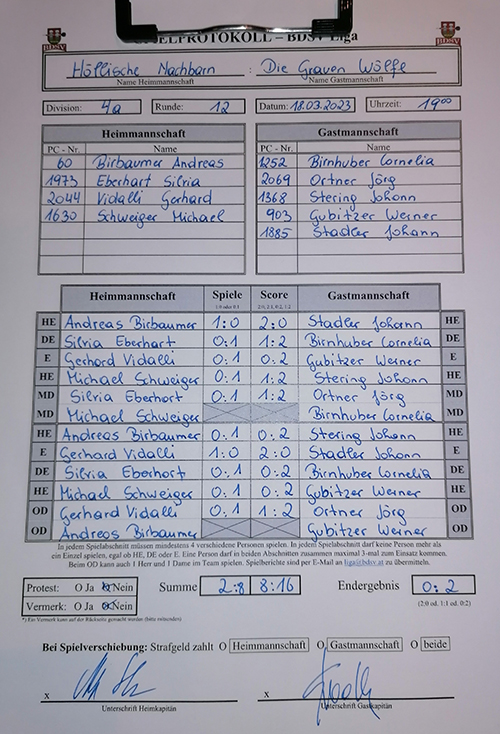 SPIELPROTOKOLL – BDSV Liga
Höllische Nachbarn : Die Grauen Wölfe
Name Heimmannschaft Name Gastmannschaft
Division: 4a Runde: 12 Datum: 18.03.2023 Uhrzeit: 19⁰⁰
Heimmannschaft Gastmannschaft
PC - Nr. Name PC - Nr. Name
60 Birbaumer Andreas 1252 Birnhuber Cornelia
1973 Eberhart Silvia 2069 Ortner Jörg
2044 Vidalli Gerhard 1368 Stering Johann
1630 Schweiger Michael 903 Gubitzer Werner
1885 Stadler Johann
Heimmannschaft Spiele Score Gastmannschaft
1:0 oder 0:1 2:0, 2:1, 0:2, 1:2
HE Andreas Birbaumer 1:0 2:0 Stadler Johann HE
DE Silvia Eberhart 0:1 1:2 Birnhuber Cornelia DE
E Gerhard Vidalli 0:1 0:2 Gubitzer Werner E
HE Michael Schweiger 0:1 1:2 Stering Johann HE
MD Silvia Eberhart 0:1 1:2 Ortner Jörg MD
MD Michael Schweiger Birnhuber Cornelia MD
HE Andreas Birbaumer 0:1 0:2 Stering Johann HE
E Gerhard Vidalli 1:0 2:0 Stadler Johann E
DE Silvia Eberhart 0:1 0:2 Birnhuber Cornelia DE
HE Michael Schweiger 0:1 0:2 Gubitzer Werner HE
OD Gerhard Vidalli 0:1 1:2 Ortner Jörg OD
OD Andreas Birbaumer Gubitzer Werner OD
In jedem Spielabschnitt müssen mindestens 4 verschiedene Personen spielen. In jedem Spielabschnitt darf keine Person mehr als
ein Einzel spielen, egal ob HE, DE oder E. Eine Person darf in beiden Abschnitten zusammen maximal 3-mal zum Einsatz kommen.
Beim OD kann auch 1 Herr und 1 Dame im Team spielen. Spielberichte sind per E-Mail an liga@bdsv.at zu übermitteln.
Protest: O Ja O Nein Summe 2:8 8:16 Endergebnis 0:2
Vermerk: O Ja O Nein (2:0 od. 1:1 od. 0:2)
*) Ein Vermerk kann auf der Rückseite gemacht werden (bitte zutreffendes)
Bei Spielverschiebung: Strafgeld zahlt O Heimmannschaft O Gastmannschaft O beide
x x
Unterschrift Heimkapitän Unterschrift Gastkapitän